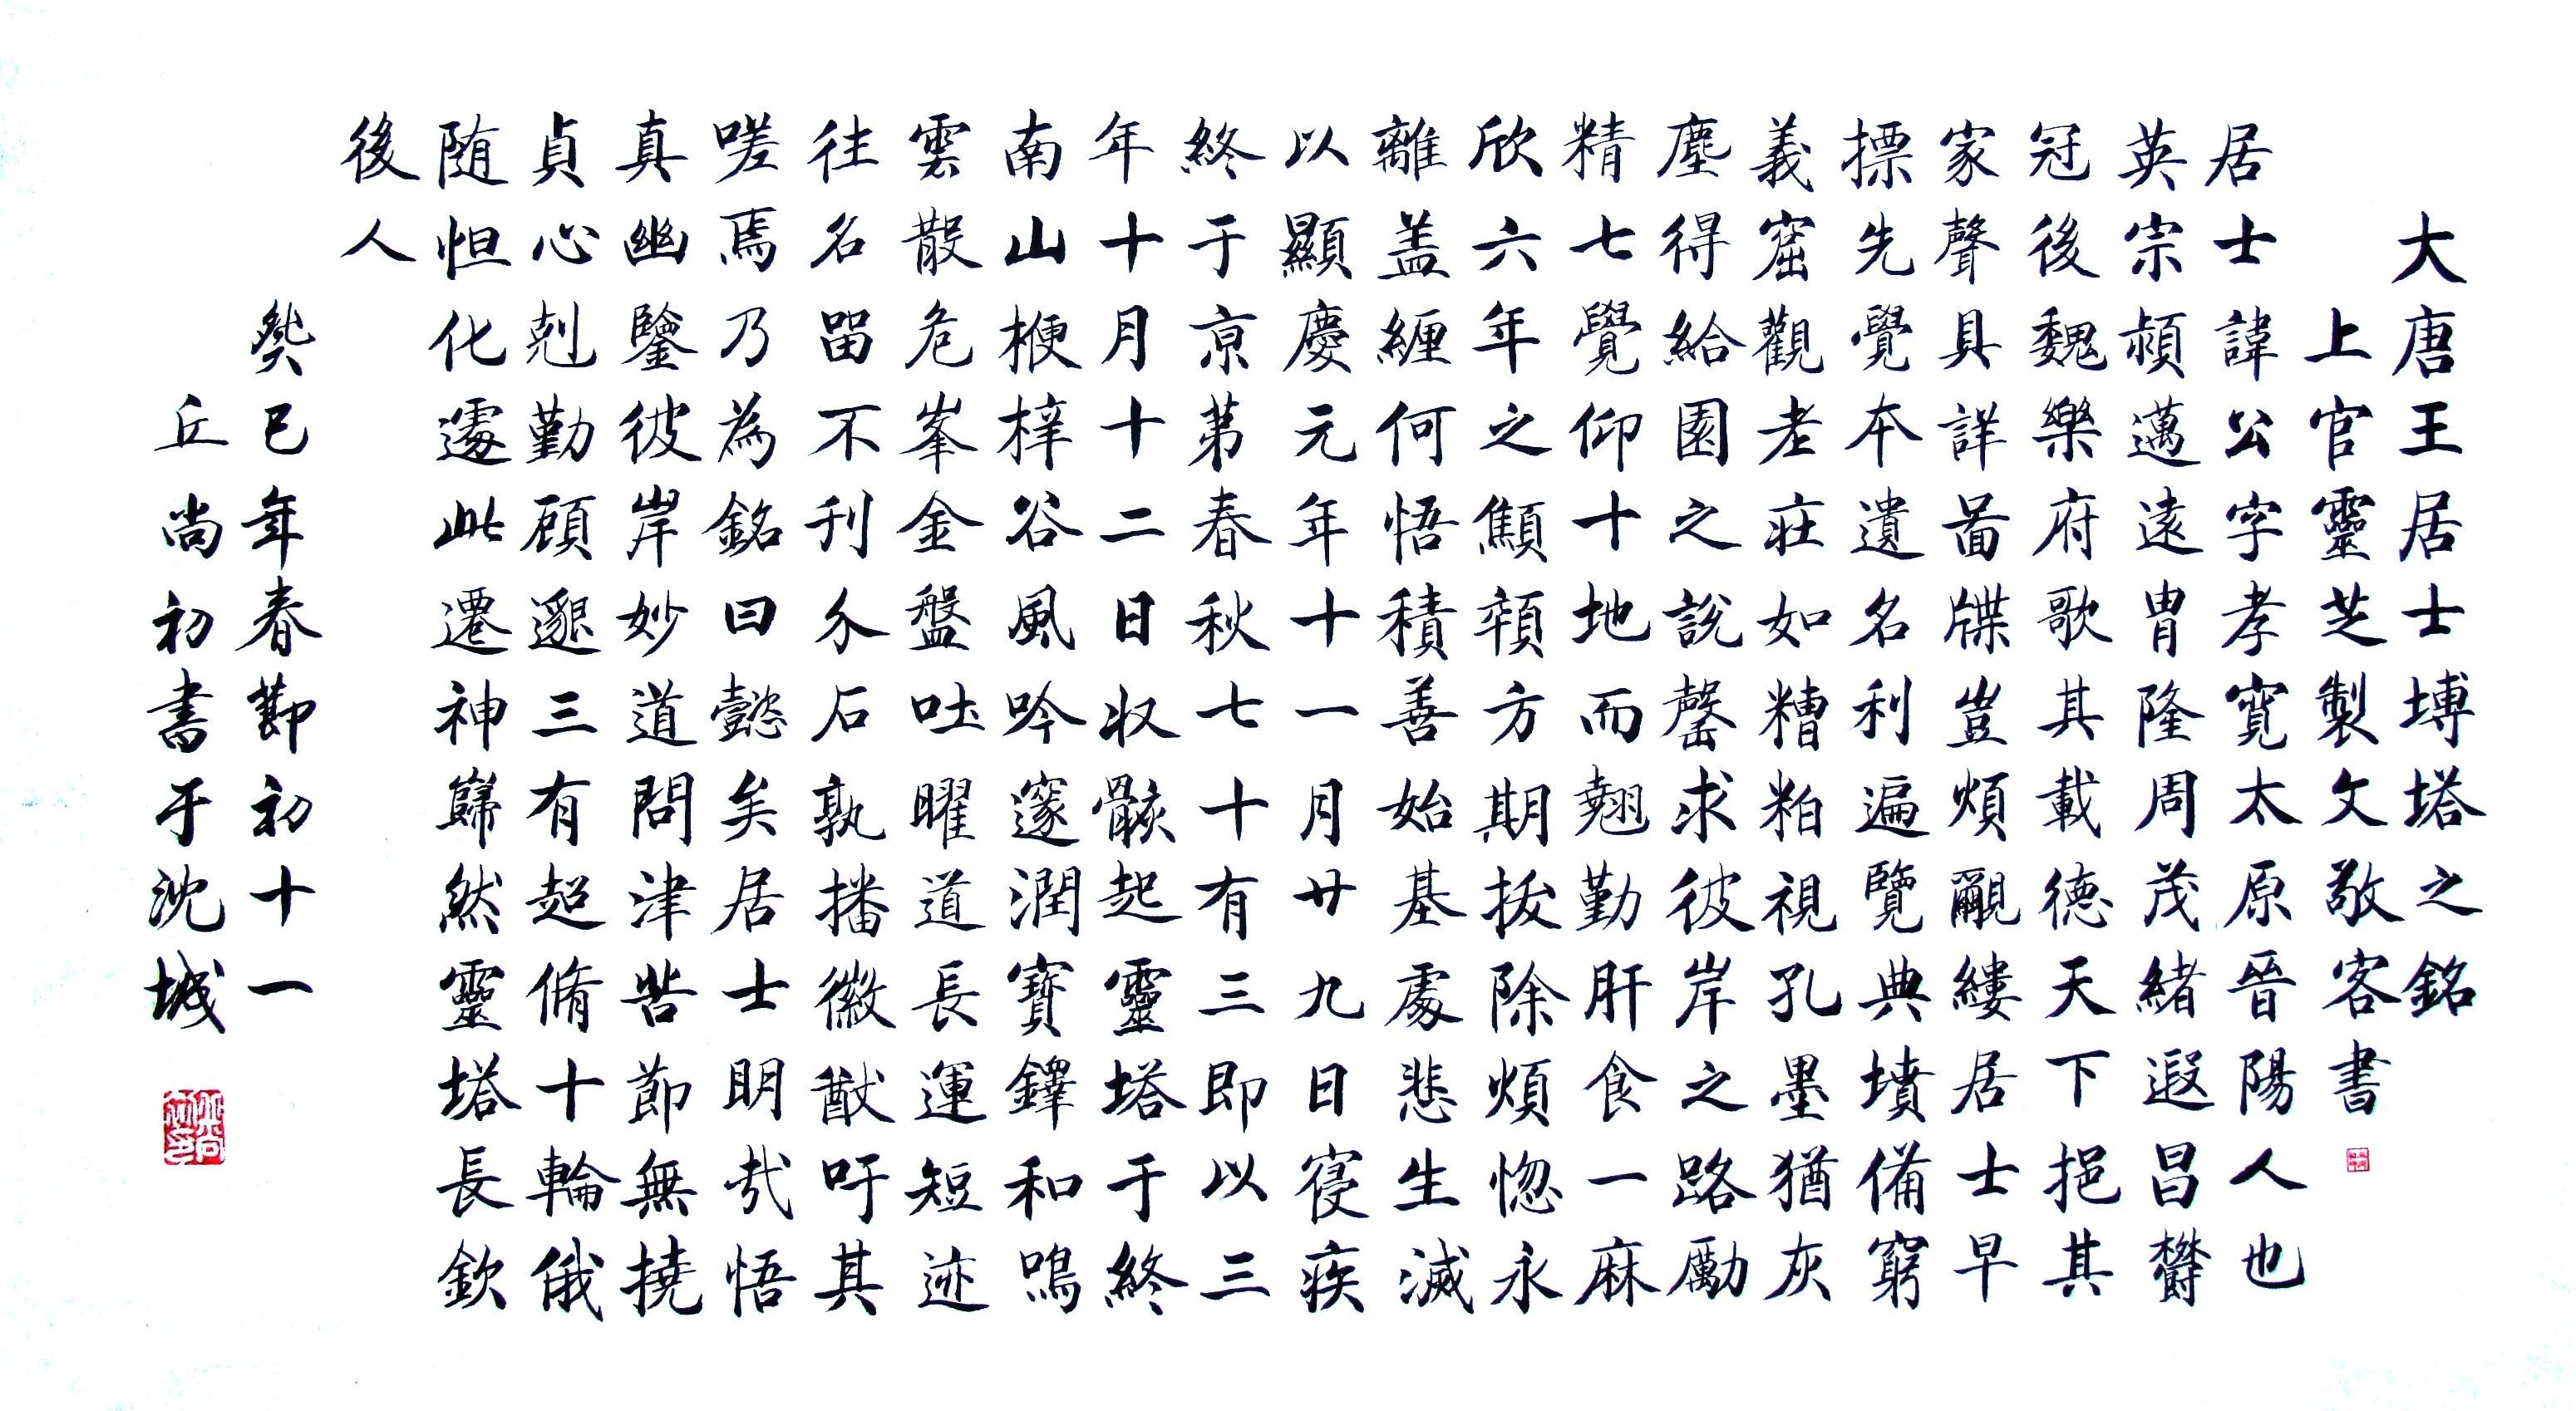 大唐王居士塼塔之銘
上官靈芝製文敬客書
居士諱公字孝寬太原晉陽人也
英宗頳邁遠胄隆周茂緒遐昌欝
冠後魏樂府歌其載德天下挹其
家聲具詳啚牒豈煩觀縷居士早
摽先覺本遺名利遍覽典墳備窮
義窟觀老莊如糟粕視孔墨猶灰
塵得給園之說罄求彼岸之路勵
精七覺仰十地而翹勤肝食一麻
欣六年之顦顇方期拔除煩惚永
離盖纏何悟積善始基處悲生滅
以顯慶元年十一月廿九日寑疾
終于京苐春秋七十有三即以三
年十月十二日收骸起靈塔于終
南山楩梓谷風吟邃澗寶鐸和鳴
雲散危峯金盤吐曜道長運短迹
往名留不刊介石孰播徽猷吁其
嗟焉乃為銘曰懿矣居士明哉悟
真幽鑒彼岸妙道問津苦節無撓
貞心剋勤顧邈三有超脩十輪俄
随怛化遽此遷神巋然靈塔長欽
後人
癸巳年春節初十一
丘尚初書于沈城